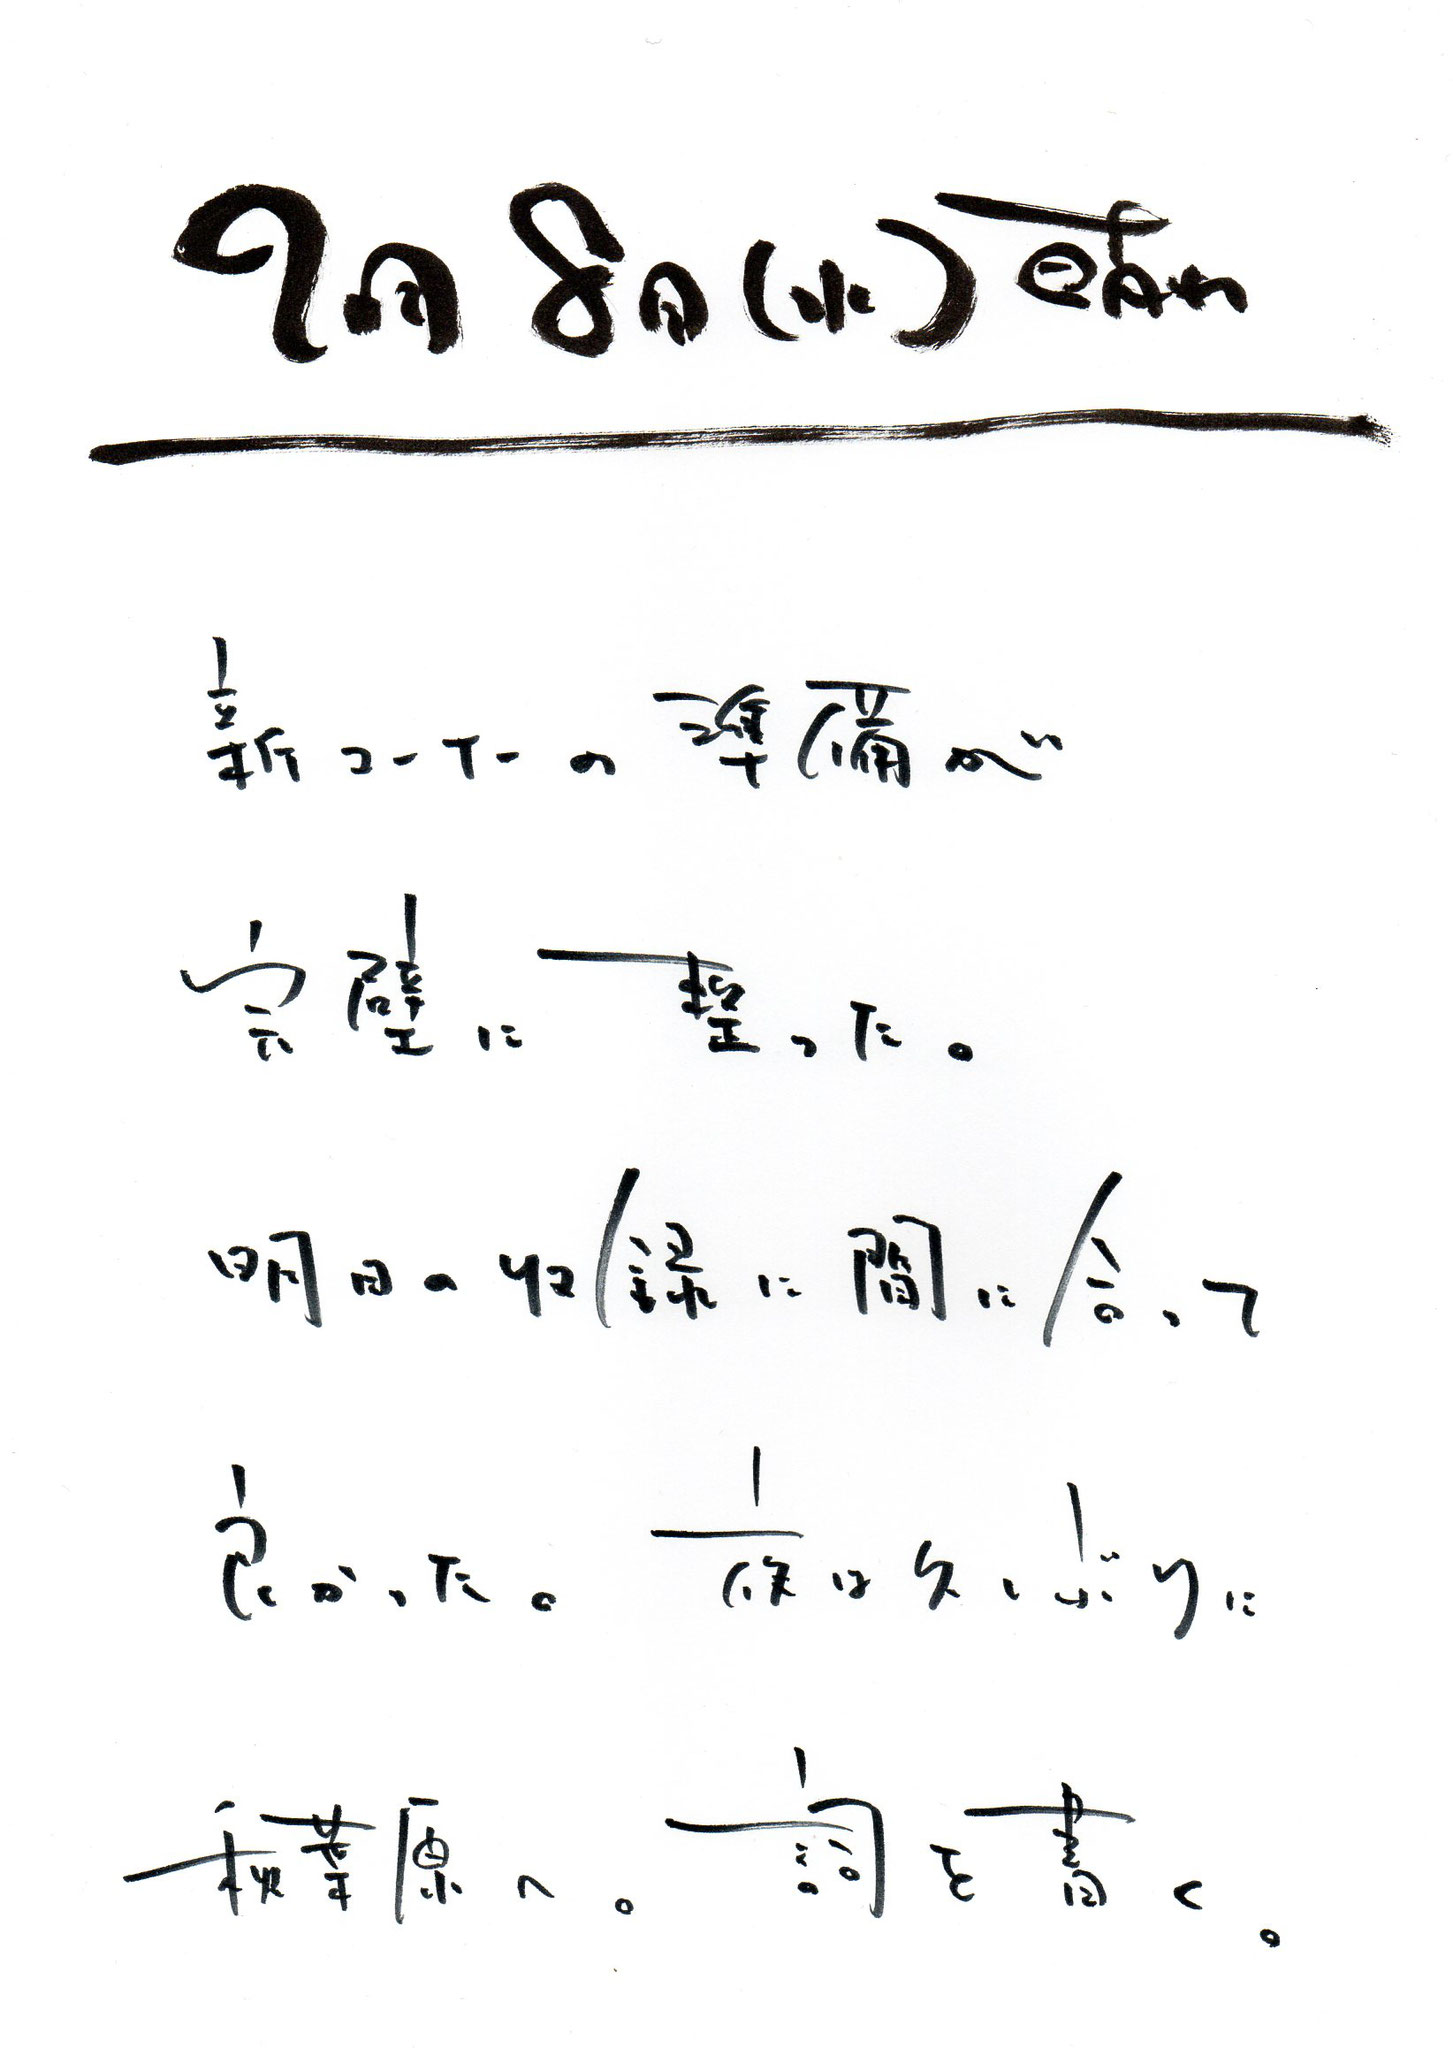 9月8日(水)
新コーナーの準備が
完璧に整った。
明日の収録に間に合って
良かった。夜は久しぶりに
秋葉原へ。詞を書く。